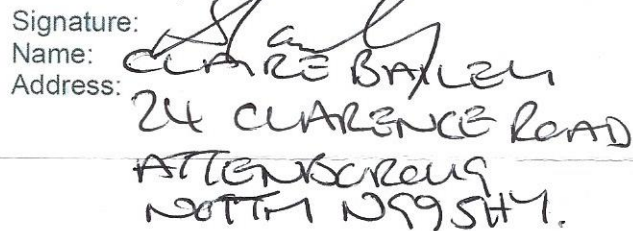 Signature:
Name: CLAIRE BAYLEY
Address: 24 CLARENCE ROAD
ATTENBOROUG
NOTTM NG9 5HY.